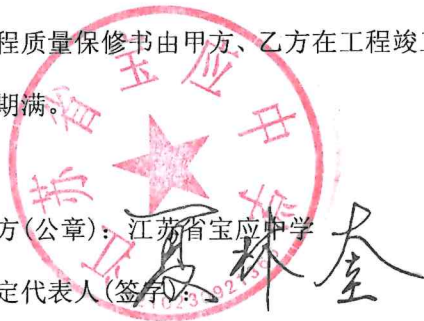 程质量保修书由甲方、乙方在工程竣工
期满。
方(公章): 江苏省宝应中学
定代表人(签字):
江苏省宝应中学
夏林奎